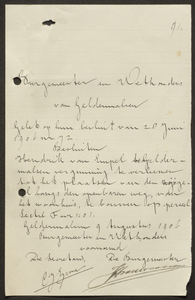 Burgemeester en Wethouders
van Geldermalsen
Gelet op hun besluit van 28 Juni
1906 no 72
Besluiten
Hendrik van Empel te Gelder-
malsen vergunning te verleenen
tot het plaatsen van een
langs den openbaren weg van
het woonhuis, te bouwen op perceel
Sectie F no
Geldermalsen 9 Augustus 1906
Burgemeester en Wethouders
voornoemd
De Secretaris, De Burgemeester